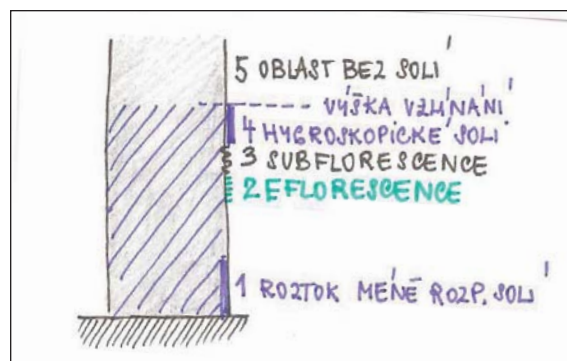 5 OBLAST BEZ SOLÍ
VÝŠKA VZLÍNÁNÍ
4 HYGROSKOPICKÉ SOLI
3 SUBFLORESCENCE
2 EFLORESCENCE
1 ROZTOK MÉNĚ ROZP. SOLÍ